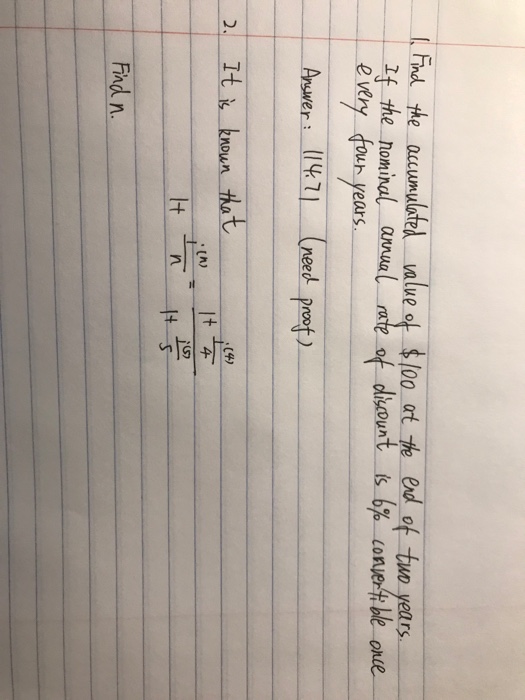 1. Find the accumulated value of $100 at the end of two years.
If the nominal annual rate of discount is 6% convertible once
every four years.
Answer: 114.71 (need proof)
2. It is known that
1+ i^(n)/n = (1+ i^(4)/4) / (1+ i^(5)/5)
Find n.